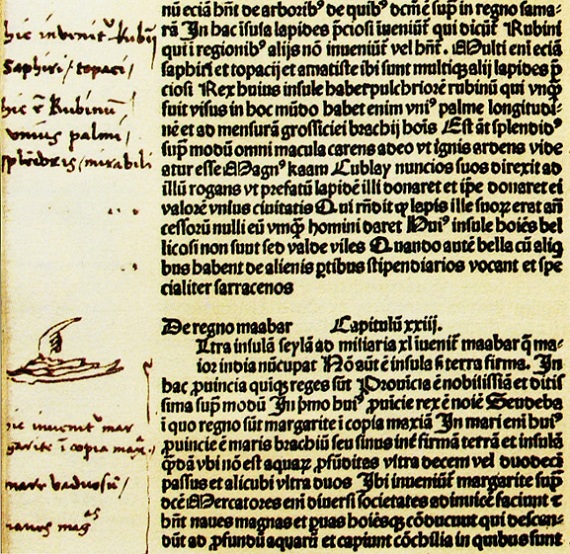 nū eciā hn̄t de arboribꝰ de quibꝰ dcm̄ ē suꝑ in regno sama-
rā In hac īsula lapides p̄ciosi īueniūt̄ qui dicūt̄ Rubini
qui ī regionibꝰ alijs nō inueniūt̄ vel hn̄t. Multi eni eciā
saphiri et topacij et amatiste ibi sunt multiqꝫ alij lapides p̄
ciosi Rex huius insule habet pulchriorē rubinū qui vnqᷓꝫ
fuit visus in hoc mūdo habet enim vniꝰ palme longitudi-
nē et ad mensurā grossiciei brachij hoīs Est āt splendidꝰ
suꝑ modū omni macula carens adeo vt ignis ardens vide
atur esse Magnꝰ kaam Cublay nuncios suos direxit ad
illū rogans vt prefatū lapidē illi donaret et ip̄e donaret ei
valorē vnius ciuitatis Qui rn̄dit ꝙ lapis ille suorꝝ erat an
cessorū nulli eū vnqᷓꝫ homini daret Huiꝰ insule hoīes bel
licosi non sunt sed valde viles Quando autē bella cū aliq̇
bus habent de alienis ꝑtibus stipendiarios vocant et spe
cialiter sarracenos
De regno maabar Capitulū xxiij.
Ltra insulā seylā ad miliaria xl īuenit̄ maabar q̄ ma-
ior india nūcupat̄ Nō aūt ē insula sꝫ terra firma. In
hac ꝓuincia quiqꝫ reges sūt Prouīcia ē nobilissīa et ditis
sima suꝑ modū In p̄mo huiꝰ ꝓuīcie rex ē noīe Seudeba
ī quo regno sūt margarite ī copia maxīa In mari eni huiꝰ
ꝓuincie ē maris brachiū seu sinus int̄ firmā terrā et insulā
qᷓdā vbi nō est aquaꝝ ꝓfūditas vltra decem vel duodecī
passus et alicubi vltra duos Ibi inueniūt̄ margarite suꝑ
dc̄e Mercatores eni diuersi societates adinuicē faciunt ⁊
hn̄t naues magnas et ꝑuas hoīesqꝫ cōducunt qui descen-
dūt ad ꝓfundū aquarū et capiunt cōchilia in quibus sunt
hic inveniūtᵘʳ Rubinj
saphiri / topaci /
hic ē Rubinū /
vnius palmi /
splēdoris / mirabili
hic inveniūtᵘʳ mar
garite ī copia maxᵃ.
mare vadosū /
naves magᵃˢ